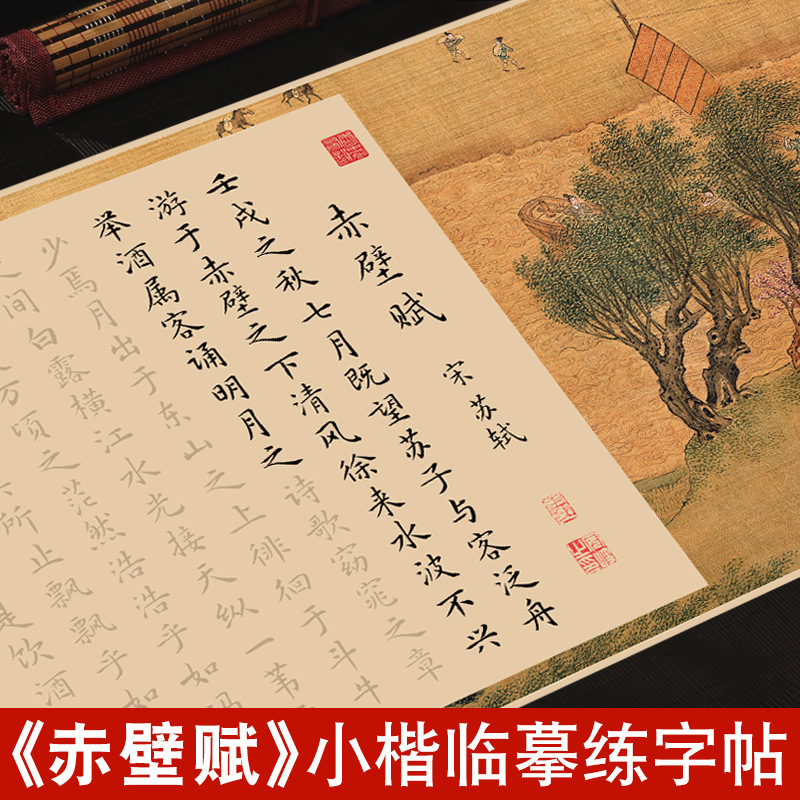 赤壁赋
宋苏轼
壬戌之秋七月既望苏子与客泛舟
游于赤壁之下清风徐来水波不兴
举酒属客诵明月之诗歌窈窕之章
少焉月出于东山之上徘徊于斗牛
间白露横江水光接天纵一苇
万顷之茫然浩浩乎如冯
所止飘飘乎如
是饮酒
《赤壁赋》小楷临摹练字帖